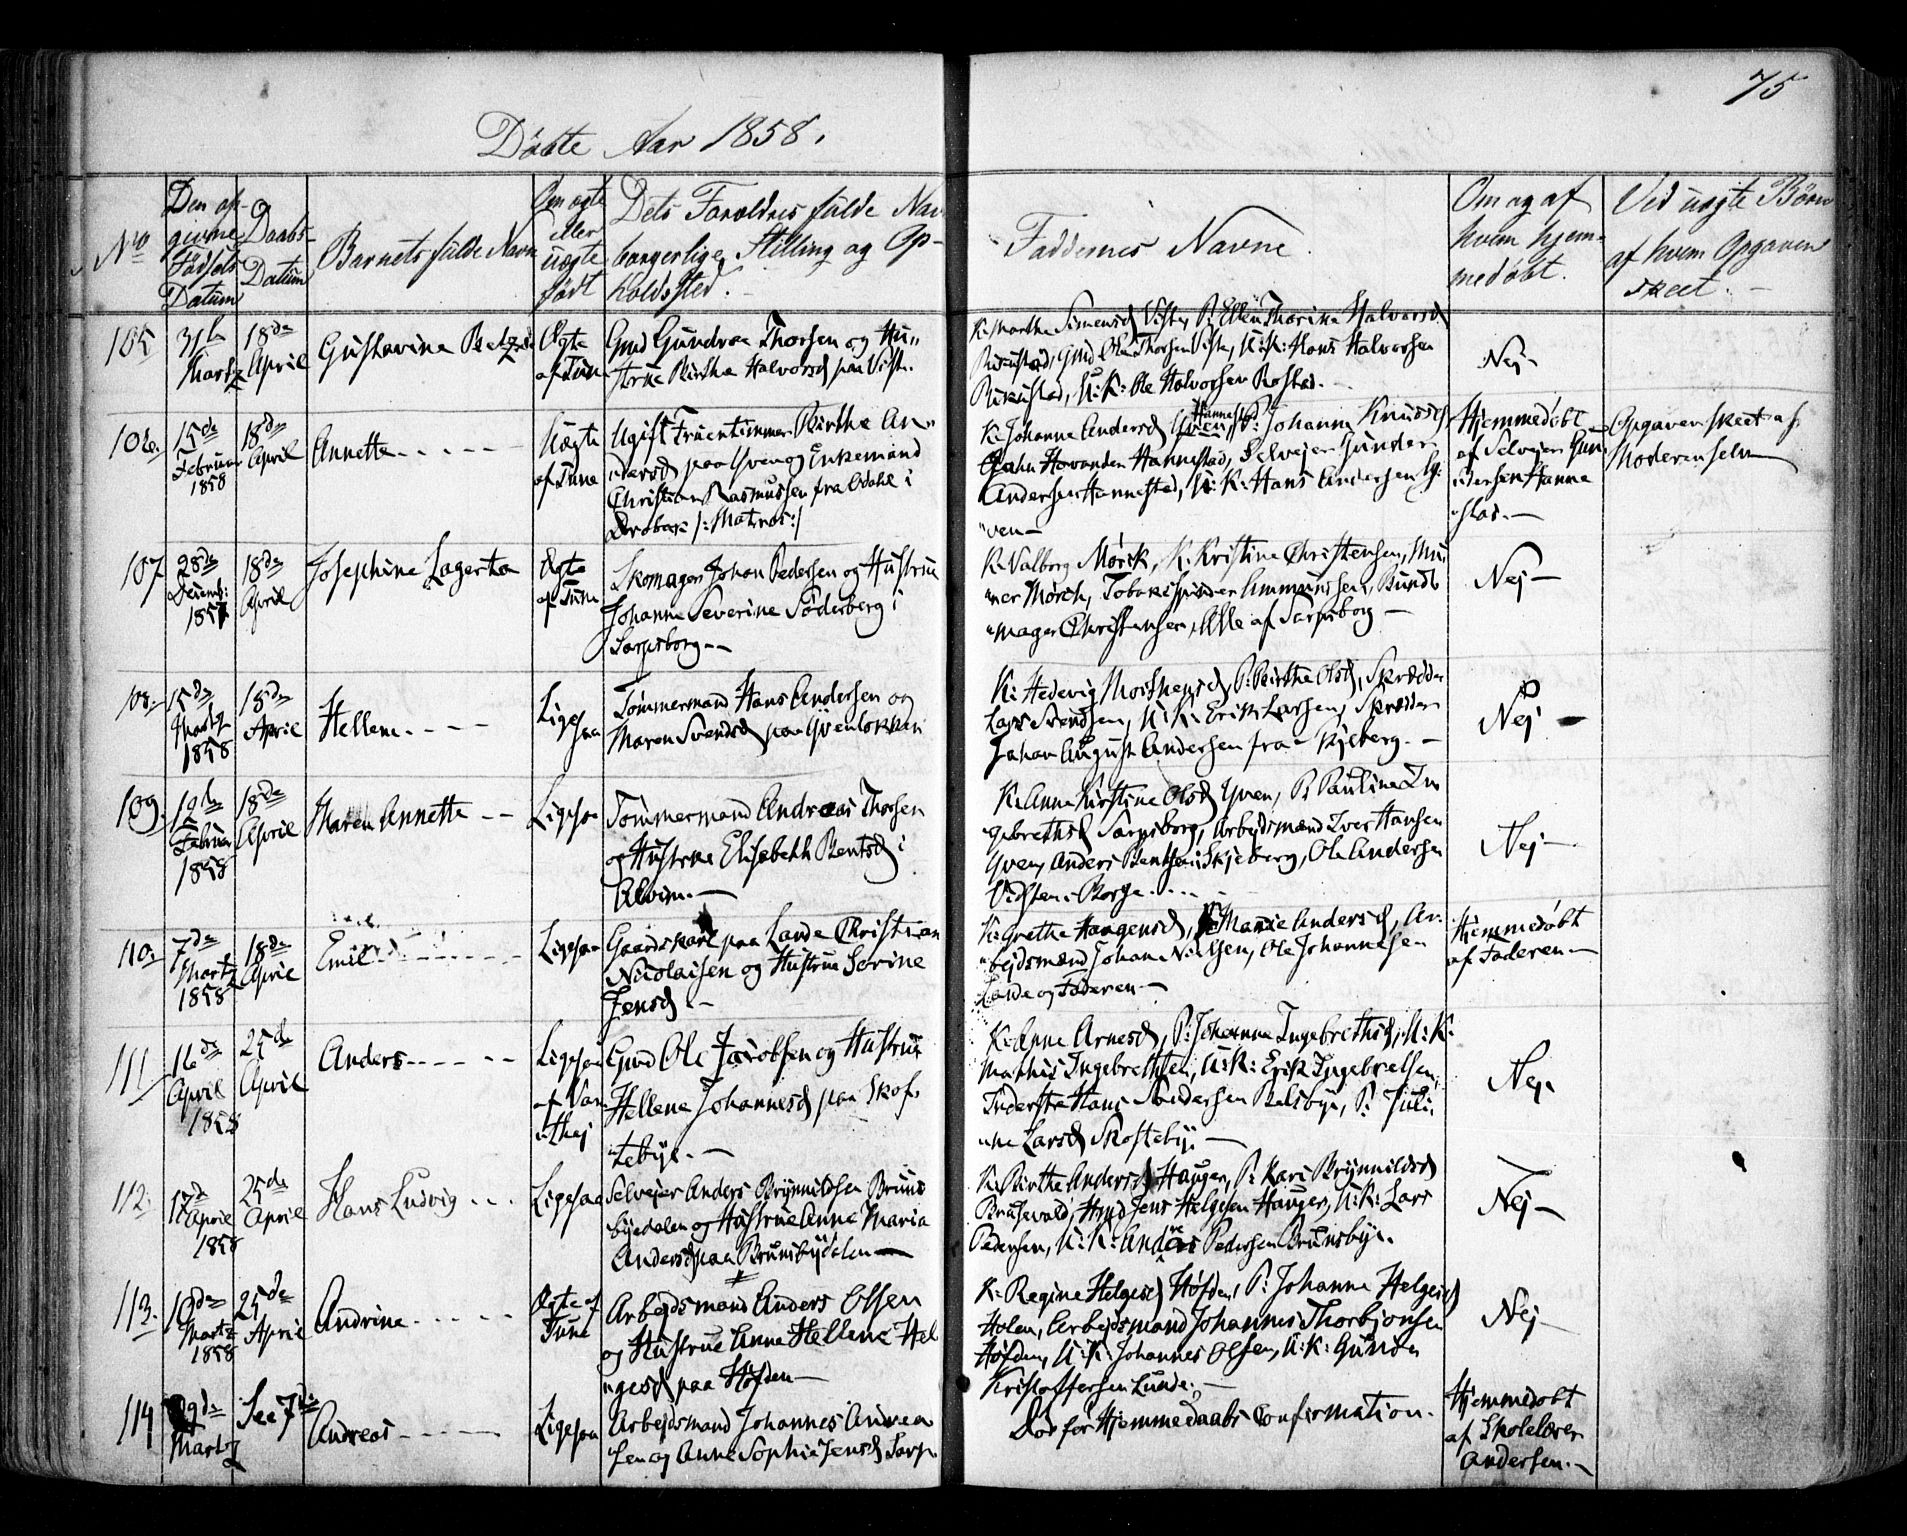 75
Döbte Aar 1858.
No
Den opgivne Födsels Datum
Daabs Datum
Barnets fulde Navn
Om ægte eller uægte födt
Dets Foræl­dres fulde Navn borgerlige Stilling og Opholdssted.
Faddernes Navne.
Om og af hvem hjemmedöbt.
Ved uægte Börn af hvem Opgaven skeet.
105
31te Martz
18de April
Gustavine
Ægte af Tune
Gmd Gundro Thorsen og Hustrue Birthe Halvorsd paa
K: Marthe Simensd P: Ellen Thorine Halvorsd
Gmd Ole Thorsen U: K: Hans Halvorsen
U: K: Ole Halvorsen
Nej
106.
15de Februar 1858
18de April
Annette
Uægte af Tune
Ugift Fruentimmer Birthe Andersd paa Yven og Enkemand
Christian Rasmussen fra Odahl i
Drobak /: Matros :/
K: Johanne Andersd Yven, P: Johanne Knudsd
Hannestad
Hannestad, Selvejer Gunder
Andersen Hannestad, U: K: Hans Andersen Yven
Hjemmedöbt af Selvejer Gunder Andersen Hannestad.
Opgaven skeet af Moderen selv
107
28de Decemb: 1857
18de April
Josephine Lagerta
Ægte af Tune
Skomager Johan Pedersen og Hustrue
Johanne Severine Söderberg i
Sarpsborg
K: Valborg Mörck, K: Kristine Christensen, Murer Mörch, Tobaksspinder Ammundsen, Bundtmager Christensen, Alle af Sarpsborg
Nej
108.
15de Martz 1858
18de April
Hellene
Ligesaa
Tömmermand Hans Andersen og
Maren Svendsd paa Yvenlökken
K: Hedevig P: Birthe Olsd, Skrædder
Lars Svendsen, U: K: Erik Larsen, Skrædder
Johan August Andersen fra Skjeberg.
Nej
109.
12te Februar 1858
18de April
Maren Annette
Ligesaa
Tömmermand Andreas Thorsen
og Hustrue Elisabeth Bentsd i
Alvim.
K: Anne Kirstine Olsd Yven, P: Pauline Ingebrethsd Sarpsborg, Arbejdsmænd Iver Hansen
Yven, Anders Benthsen Skjeberg, Ole Andersen
Vidsten i Borge
Nej
110.
7de Martz 1858
18de April
Emil
Ligesaa
Gaardskarl paa Lande Christian
Nicolaisen og Hustrue Sorine
Jensd.
K: Grethe Haagensd, P: Marie Andersd, Arbejdsmænd Johan Nielsen, Ole Johannesen
Lande og Faderen
Hjemmedöbt af Faderen
111
16de April 1858
25de April
Anders
Ligesaa af Varthej
Gmd Ole Jacobsen og Hustrue
Hellene Johannesd paa Skoftebye.
K: Anne Arnesd, P: Johanne Ingebrethsd, U: K:
Mathis Ingebrethsen, U: K: Erik Ingebrethsen,
Hans Andersen P: Juline Larsd Skoftebye
Nej
112.
17de April 1858
25de April
Hans Ludvig
Ligesaa
Selvejer Anders Brynnildsen Brunsbyedalen og Hustrue Anne Maria
Andersd paa Brunsbyedalen
K: Birthe Andersd Hauger, P: Kari Brynnildsd
Brusevold, Gmd Jens Helgesen Hauger, U: K: Lars
Pedersen, U: K: Anders Pedersen Brunsbye.
Nej
113.
10de Martz 1858
25de April
Andrine
Ægte af Tune
Arbejdsmand Anders Olsen
og Hustrue Anne Hellene Helgesd paa Höfden
K: Regine Helgesd Höfden, P: Johanne Helgesd
Holen, Arbejdsmand Johannes Thorbjonsen
Höfden, U: K: Johannes Olsen, U: K: Gunder
Kristoffersen Lunde.
Nej
114
29de Martz
See 7de
Andreas
Ligesaa
Arbejdsmand Johannes Andreasen og Anne Sophie Jensd Sarp
Död for Hjemmedaabs Confirmation.
Hjemmedöbt af Skolelærer Andersen.